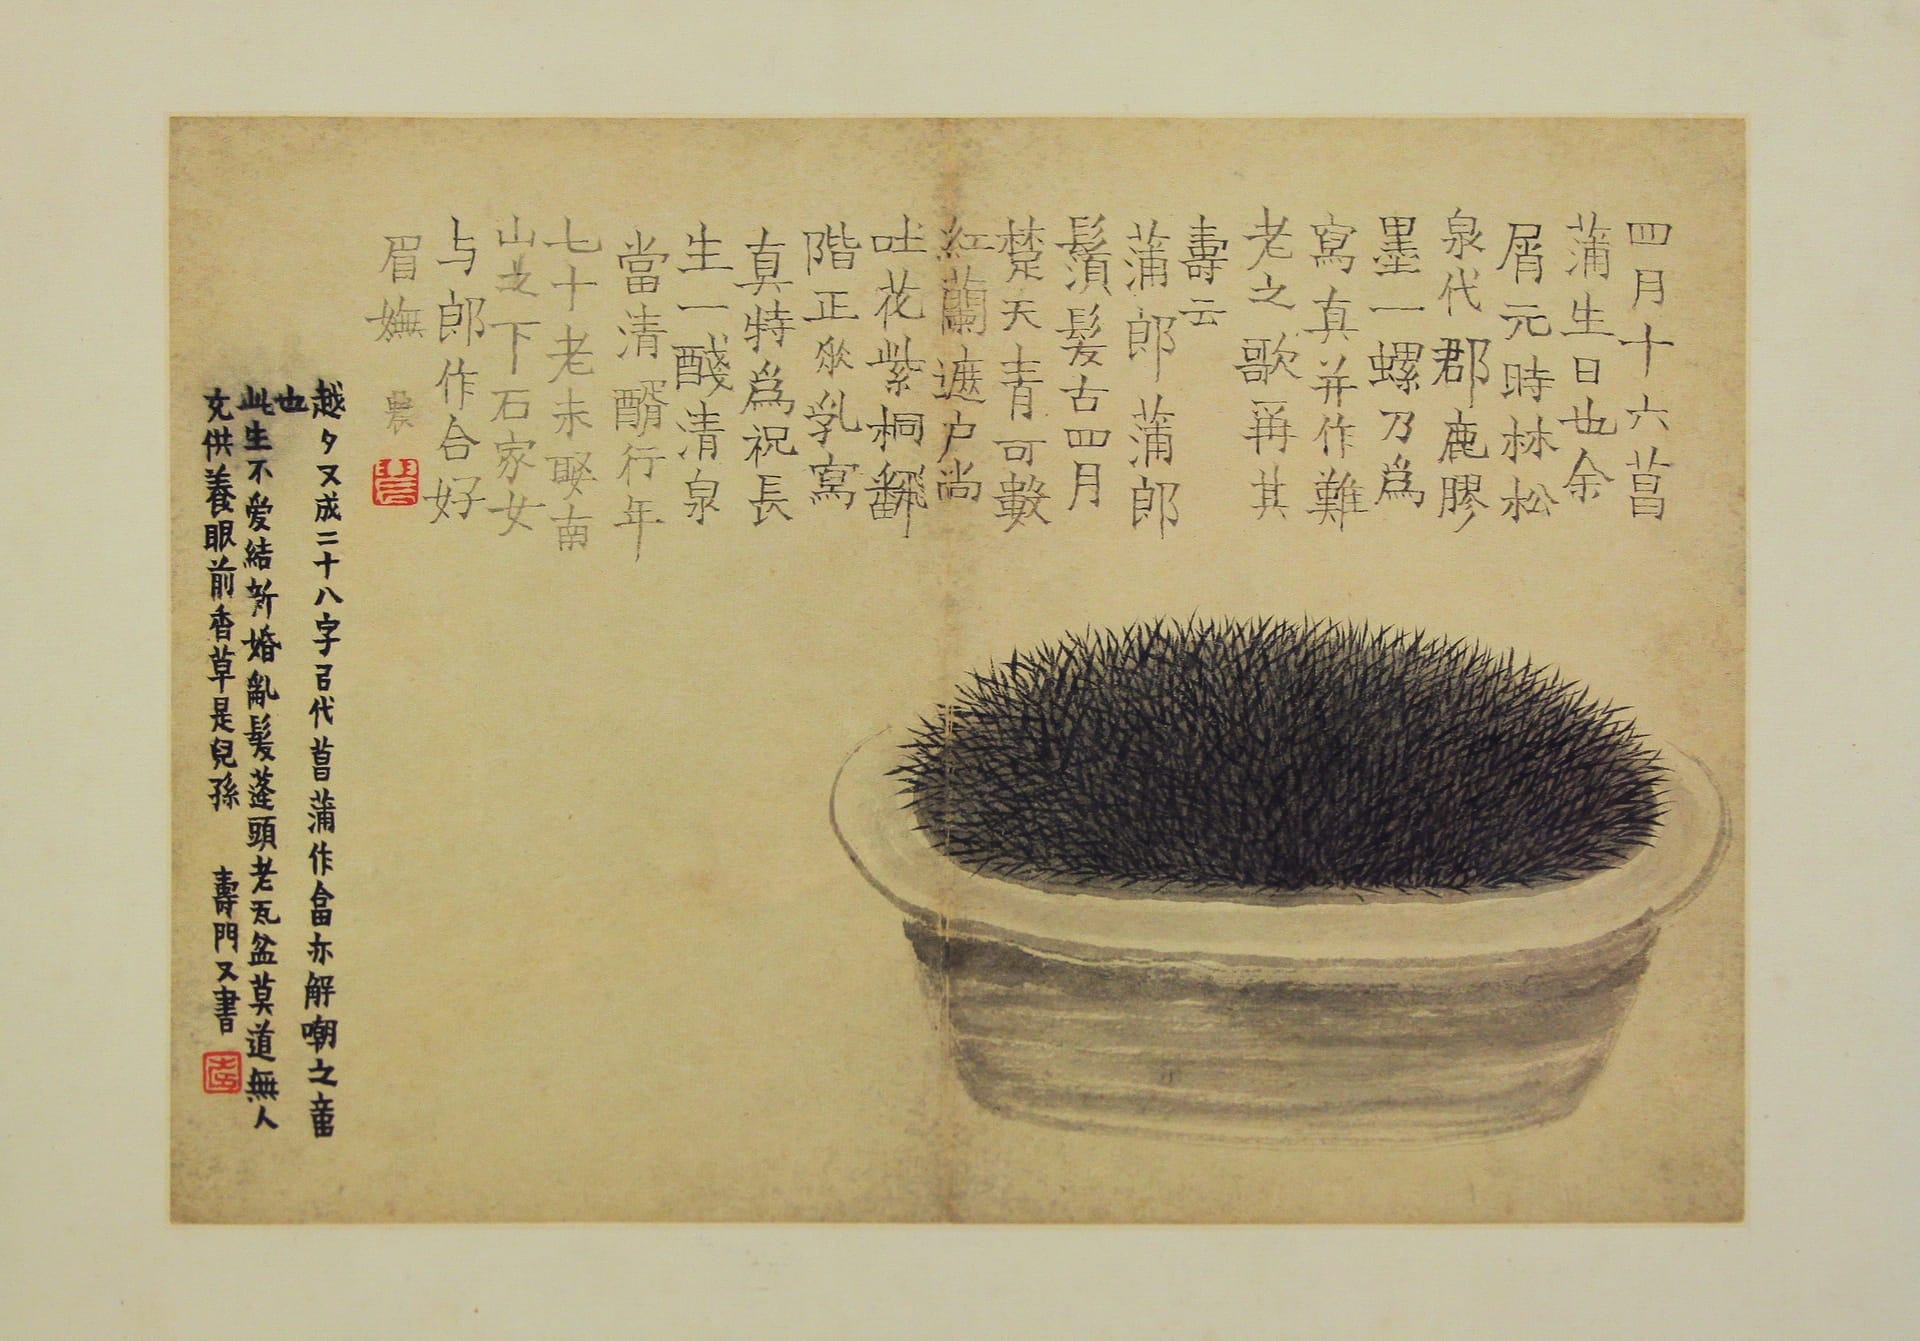 四月十六菖
蒲生日也余
屑元時林松
泉代郡鹿膠
墨一螺乃為
寫真并作難
老之歌稱其
壽云
蒲郎蒲郎
鬚髮古四月
楚天青可數
紅蘭遮户尚
吐花紫桐翻
階正飲乳寫
真特為祝長
生一醆清泉
當清醑行年
七十老未娶南
山之下石家女
与郎作合好
眉嫵 農
越夕又成二十八字㠯代菖蒲作畣亦解嘲之意
也
此生不爱結新婚亂髮蓬頭老瓦盆莫道無人
充供養眼前香草是兒孫 壽門又書